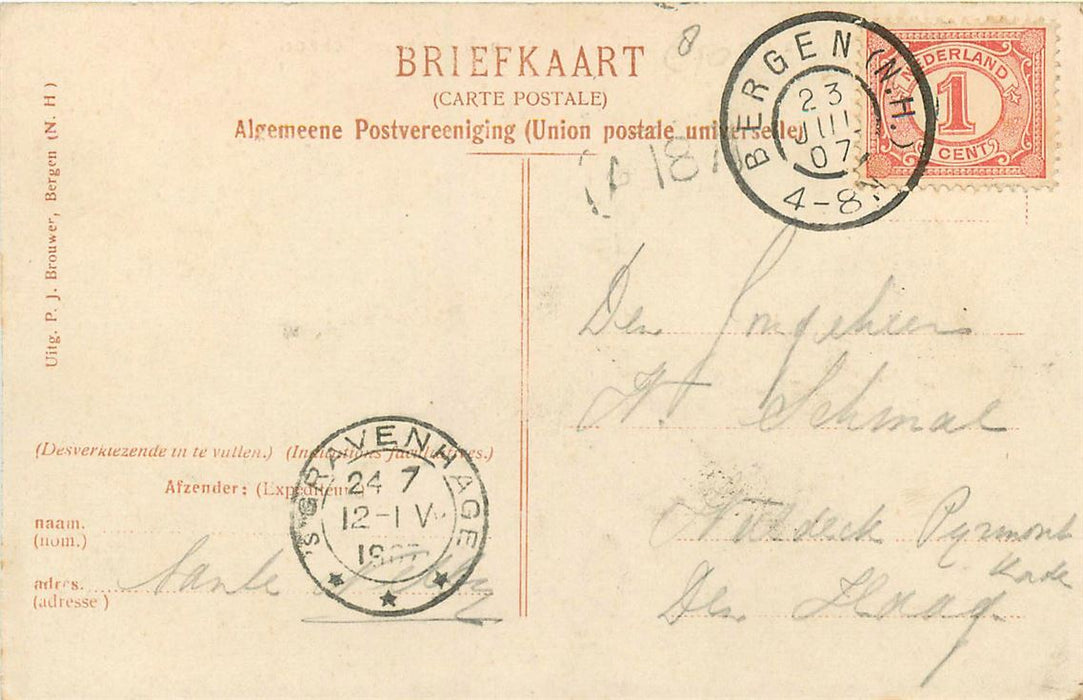 BRIEFKAART
(CARTE POSTALE)
Algemeene Postvereeniging (Union postale universelle)
Uitg. P. J. Brouwer, Bergen (N. H)
BERGEN (N.H.)
23
JUL
07
4-8N
NEDERLAND
1
CENT
8
18
Den Jongeheer
Schmal
Pyrmont
Kade
Den Haag
(Desverkiezende in te vullen.) (Indications facultatives.)
Afzender: (Expéditeur)
naam.
(nom.)
adres.
(adresse)
Tante
'S GRAVENHAGE
24 7
12-1 V
1907